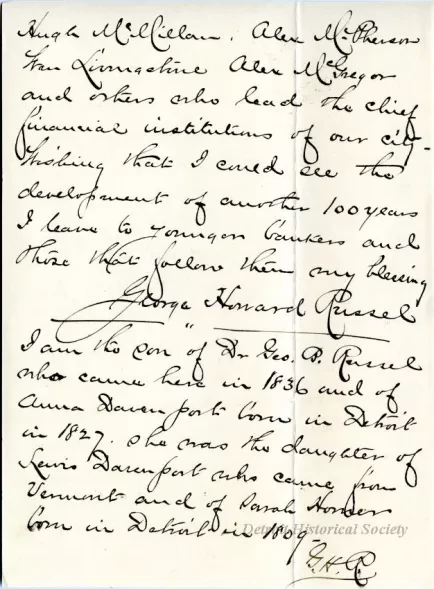 Hugh McMillan, Alex McPherson
Wm Livingstone Alex McGregor
and others who lead the chief
financial institutions of our city -
Wishing that I could see the
development of another 100 years
I leave to younger bankers and
those that follow them my blessing
George Howard Russel
"
I am the son of Dr Geo. B. Russel
who came here in 1836 and of
Anna Davenport born in Detroit
in 1827. she was the daughter of
Lewis Davenport who came from
Vermont and of Sarah
born in Detroit in 1809
Detroit Historical Society
G.H.R.